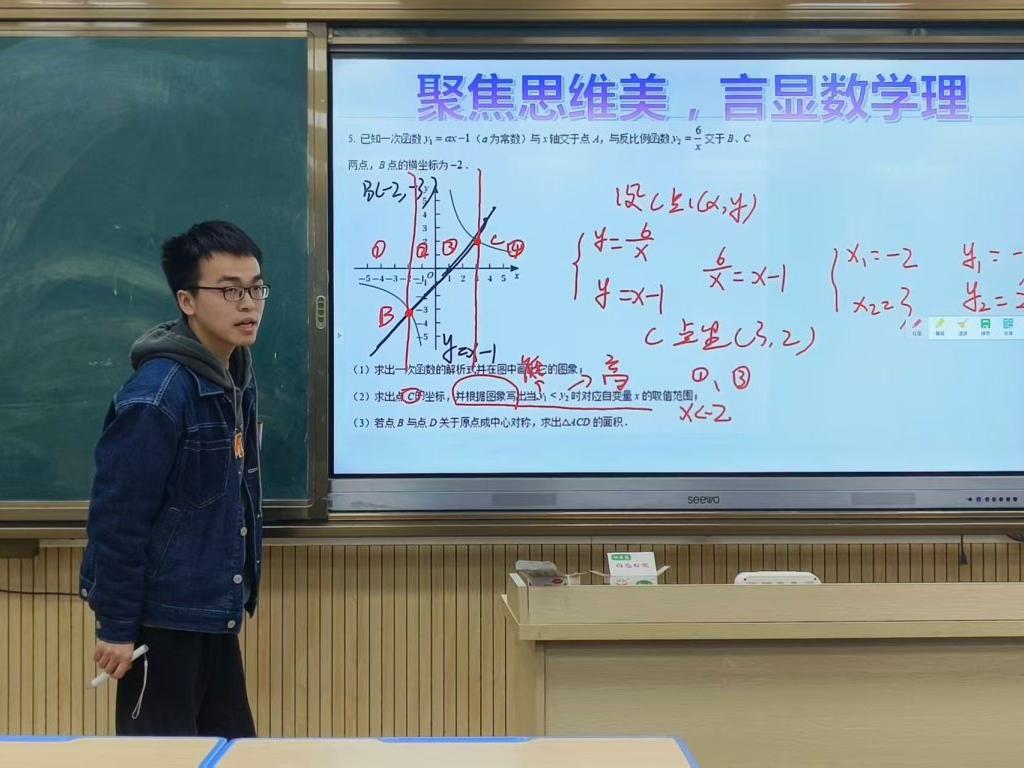 聚焦思维美，言显数学理
5. 已知一次函数 y₁ = ax − 1（a 为常数）与 x 轴交于点 A，与反比例函数 y₂ = 6/x 交于 B、C
两点，B 点的横坐标为 −2．
B(-2, -3)
设C点(x, y)
y = 6/x
y = x-1
6/x = x-1
x₁ = -2
x₂ = 3
C点坐(3, 2)
① ② ③ ④
C
B
-5 -4 -3 -2 -1 O 1 2 3 4 5 x
y = x-1
（1）求出一次函数的解析式并在图中画出它的图象；
低 → 高
①、③
（2）求出点 C 的坐标，并根据图象写出当 y₁ < y₂ 时对应自变量 x 的取值范围；
x<-2
（3）若点 B 与点 D 关于原点成中心对称，求出△ACD 的面积．
seewo